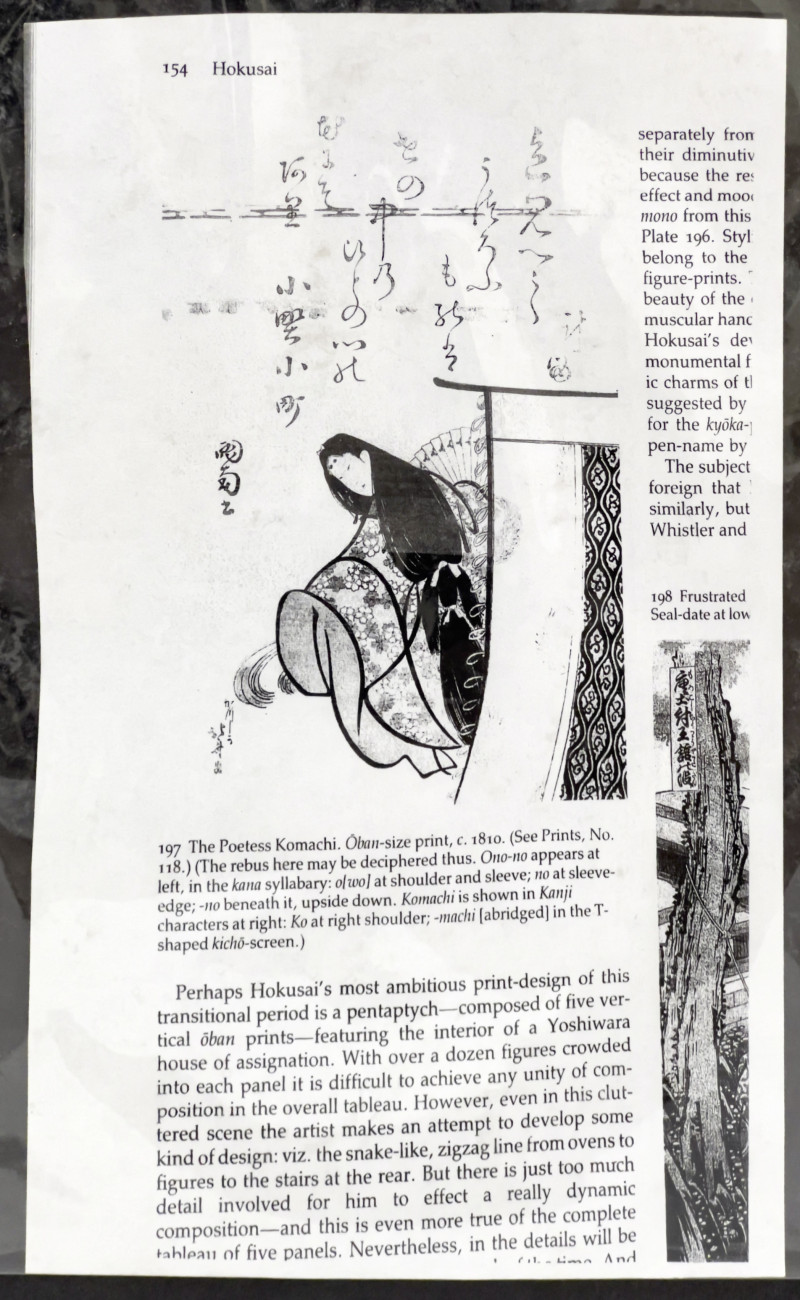 154 Hokusai
うつろふ
小野小町
197 The Poetess Komachi. Ōban-size print, c. 1810. (See Prints, No.
118.) (The rebus here may be deciphered thus. Ono-no appears at
left, in the kana syllabary: o[wo] at shoulder and sleeve; no at sleeve-
edge; -no beneath it, upside down. Komachi is shown in Kanji
characters at right: Ko at right shoulder; -machi [abridged] in the T-
shaped kichō-screen.)
Perhaps Hokusai's most ambitious print-design of this
transitional period is a pentaptych—composed of five ver-
tical ōban prints—featuring the interior of a Yoshiwara
house of assignation. With over a dozen figures crowded
into each panel it is difficult to achieve any unity of com-
position in the overall tableau. However, even in this clut-
tered scene the artist makes an attempt to develop some
kind of design: viz. the snake-like, zigzag line from ovens to
figures to the stairs at the rear. But there is just too much
detail involved for him to effect a really dynamic
composition—and this is even more true of the complete
tableau of five panels. Nevertheless, in the details will be
separately from
their diminutiv
because the res
effect and moo
mono from this
Plate 196. Styl
belong to the
figure-prints.
beauty of the
muscular hand
Hokusai's de
monumental f
ic charms of t
suggested by
for the kyōka-
pen-name by
The subject
foreign that
similarly, but
Whistler and
198 Frustrated
Seal-date at low